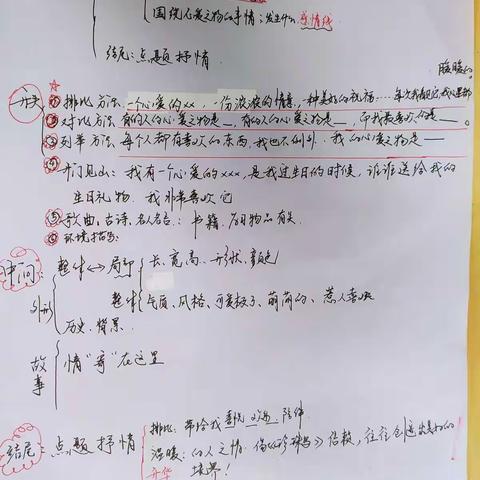 围绕心爱之物的事情：发生什么 感情线
结尾：点题 抒情
暖暖的。
开头
① 排比方法、一个心爱的xx，一份浓浓的情意，一种美好的祝福…每次我都
② 对比方法 有的人的心爱之物是__，有的人的心爱之物是__，而我最喜欢的是__。
③ 列举方法、每个人都有喜欢的东西，我也不例外，我的心爱之物是__
④ 开门见山：我有一个心爱的xxx，是我过生日的时候，谁谁送给我的
生日礼物，我非常喜欢它
⑤ 歌曲、古诗、名人名言：书籍、
⑥ 环境描写：
中间：
外形
整体↔局部
长、宽、高、形状、颜色
整体 气质、风格、可爱样子、萌萌的、惹人喜欢
历史、背景、
故事
情“寄”在这里
结尾：点题 抒情
排比：带给我喜悦 陪伴
温暖：
升华 境界！